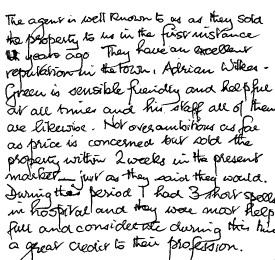 The agent is well known to as as they sold
the property to us in the first instance
4 years ago. They have an excellent
reputation in the town. Adrian Wilkes-
Green is sensible friendly and helpful
at all times and his staff all of them
are likewise. Not over ambitious as far
as price is concerned but sold the
property within 2 weeks in the present
market – just as they said they would.
During this period I had 3 short spells
in hospital and they were most help
full and considerate during this time
a great credit to their profession.